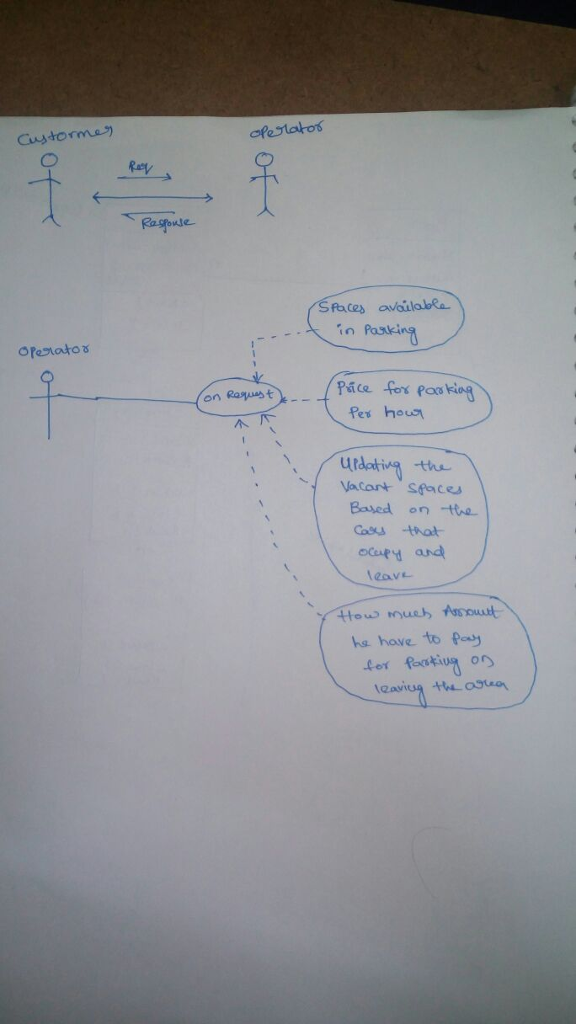 Custormer
operator
Req
Response
Spaces available
in Parking
operator
on Request
Price for parking
Per hour
Updating the
Vacant Spaces
Based on the
Cars that
ocupy and
leave
How much Amount
he have to pay
for Parking on
leaving the area